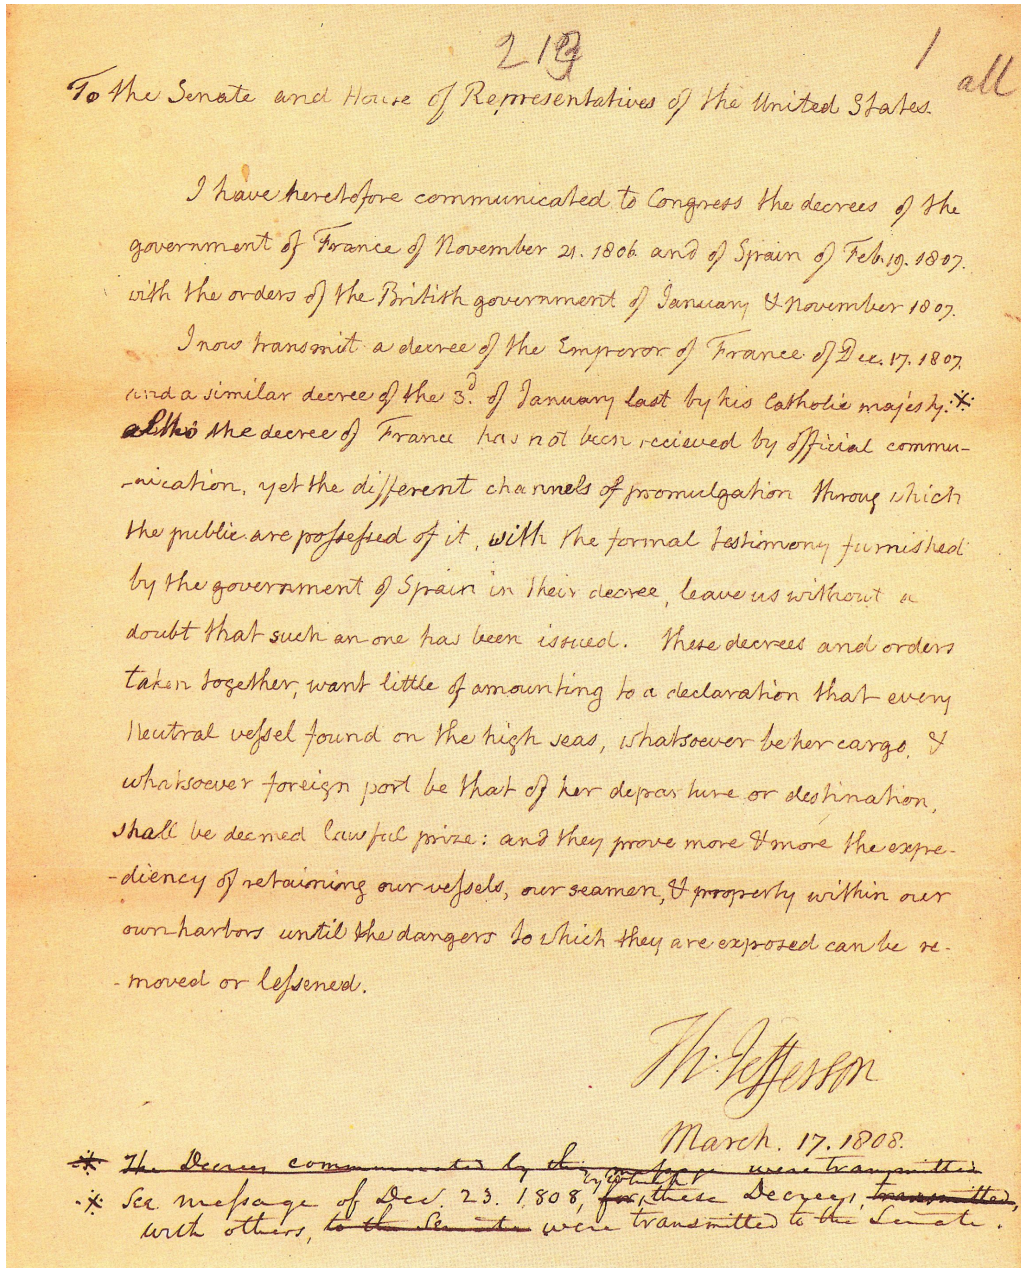 213
1
all
To the Senate and House of Representatives of the United States.
I have heretofore communicated to Congress the decrees of the
government of France of November 21. 1806. and of Spain of Feb. 19. 1807.
with the orders of the British government of January & November 1807.
I now transmit a decree of the Emperor of France of Dec. 17. 1807.
and a similar decree of the 3d. of January last by his Catholic majesty. *
altho' the decree of France has not been recieved by official commu-
-nication, yet the different channels of promulgation throug which
the public are possessed of it, with the formal testimony furnished
by the government of Spain in their decree, leave us without a
doubt that such an one has been issued. These decrees and orders
taken together, want little of amounting to a declaration that every
neutral vessel found on the high seas, whatsoever be her cargo, &
whatsoever foreign port be that of her departure or destination,
shall be deemed lawful prize: and they prove more & more the expe-
-diency of retaining our vessels, our seamen, & property within our
own harbors until the dangers to which they are exposed can be re-
-moved or lessened.
Th: Jefferson
March. 17. 1808.
* The Decrees communicated by this message were transmitted
by which
* See message of Dec. 23. 1808, for, these Decrees, transmitted,
with others, to the Senate were transmitted to the Senate.